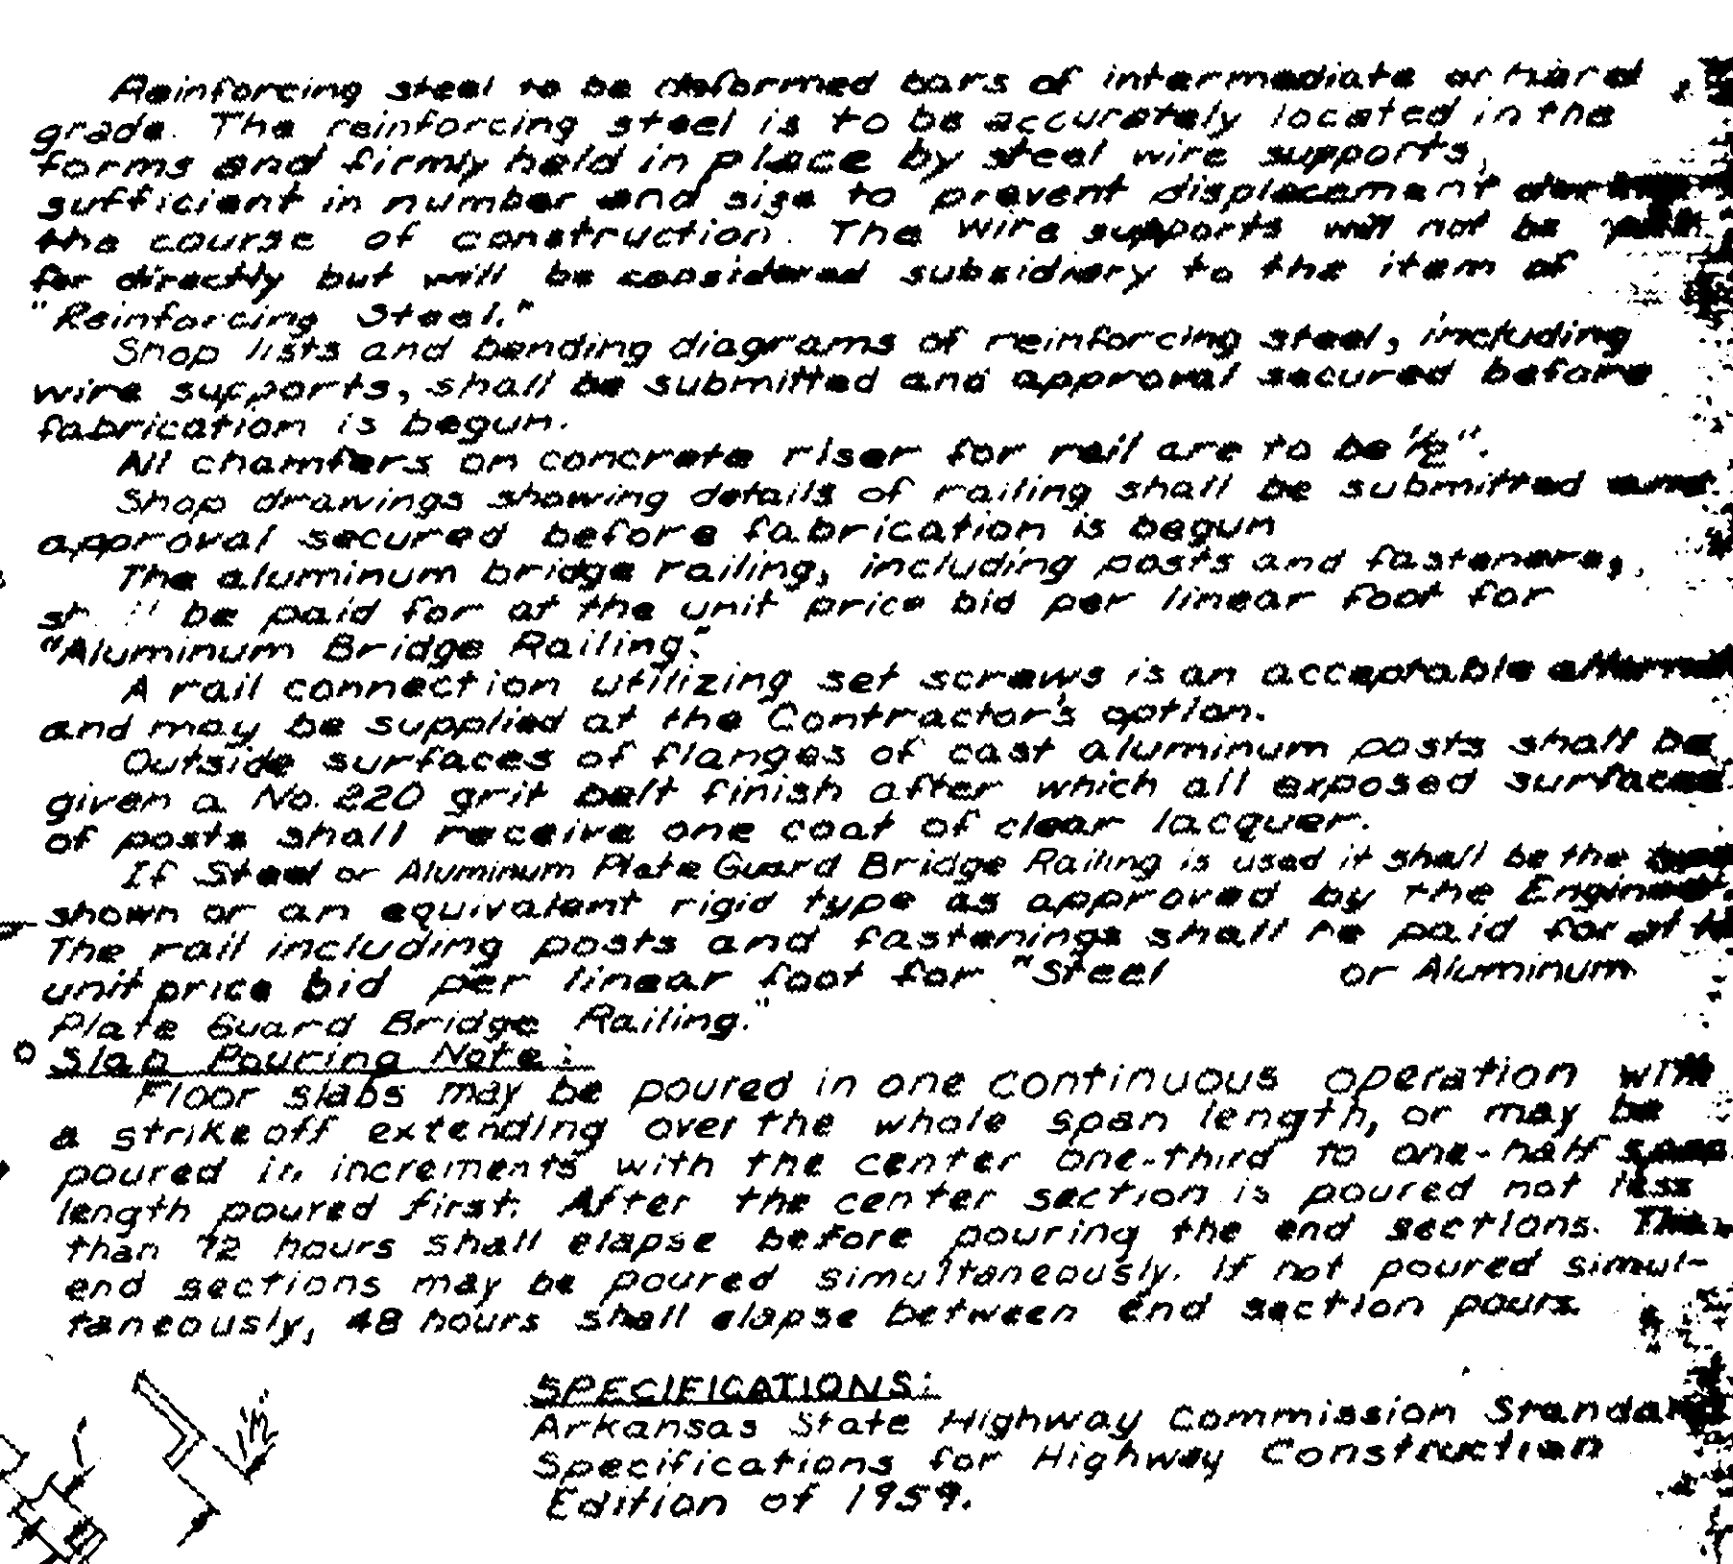 Reinforcing steel to be deformed bars of intermediate or hard
grade. The reinforcing steel is to be accurately located in the
forms and firmly held in place by steel wire supports,
sufficient in number and size to prevent displacement during
the course of construction. The wire supports will not be paid
for directly but will be considered subsidiary to the item of
"Reinforcing Steel."
Shop lists and bending diagrams of reinforcing steel, including
wire supports, shall be submitted and approval secured before
fabrication is begun.
All chamfers on concrete riser for rail are to be 1/2".
Shop drawings showing details of railing shall be submitted and
approval secured before fabrication is begun
The aluminum bridge railing, including posts and fasteners,
be paid for at the unit price bid per linear foot for
"Aluminum Bridge Railing."
A rail connection utilizing set screws is an acceptable
and may be supplied at the Contractor's option.
Outside surfaces of flanges of cast aluminum posts shall be
given a No. 220 grit belt finish after which all exposed surfaces
of posts shall receive one coat of clear lacquer.
If Steel or Aluminum Plate Guard Bridge Railing is used it shall be the
shown or an equivalent rigid type as approved by the Engineer.
The rail including posts and fastenings shall be paid for at the
unit price bid per linear foot for "Steel or Aluminum
Plate Guard Bridge Railing."
Slab Pouring Note:
Floor slabs may be poured in one continuous operation with
a strike off extending over the whole span length, or may be
poured in increments with the center one-third to one-half span
length poured first. After the center section is poured not less
than 72 hours shall elapse before pouring the end sections. The
end sections may be poured simultaneously. If not poured simul-
taneously, 48 hours shall elapse between end section pours.
SPECIFICATIONS:
Arkansas State Highway Commission Standard
Specifications for Highway Construction
Edition of 1959.